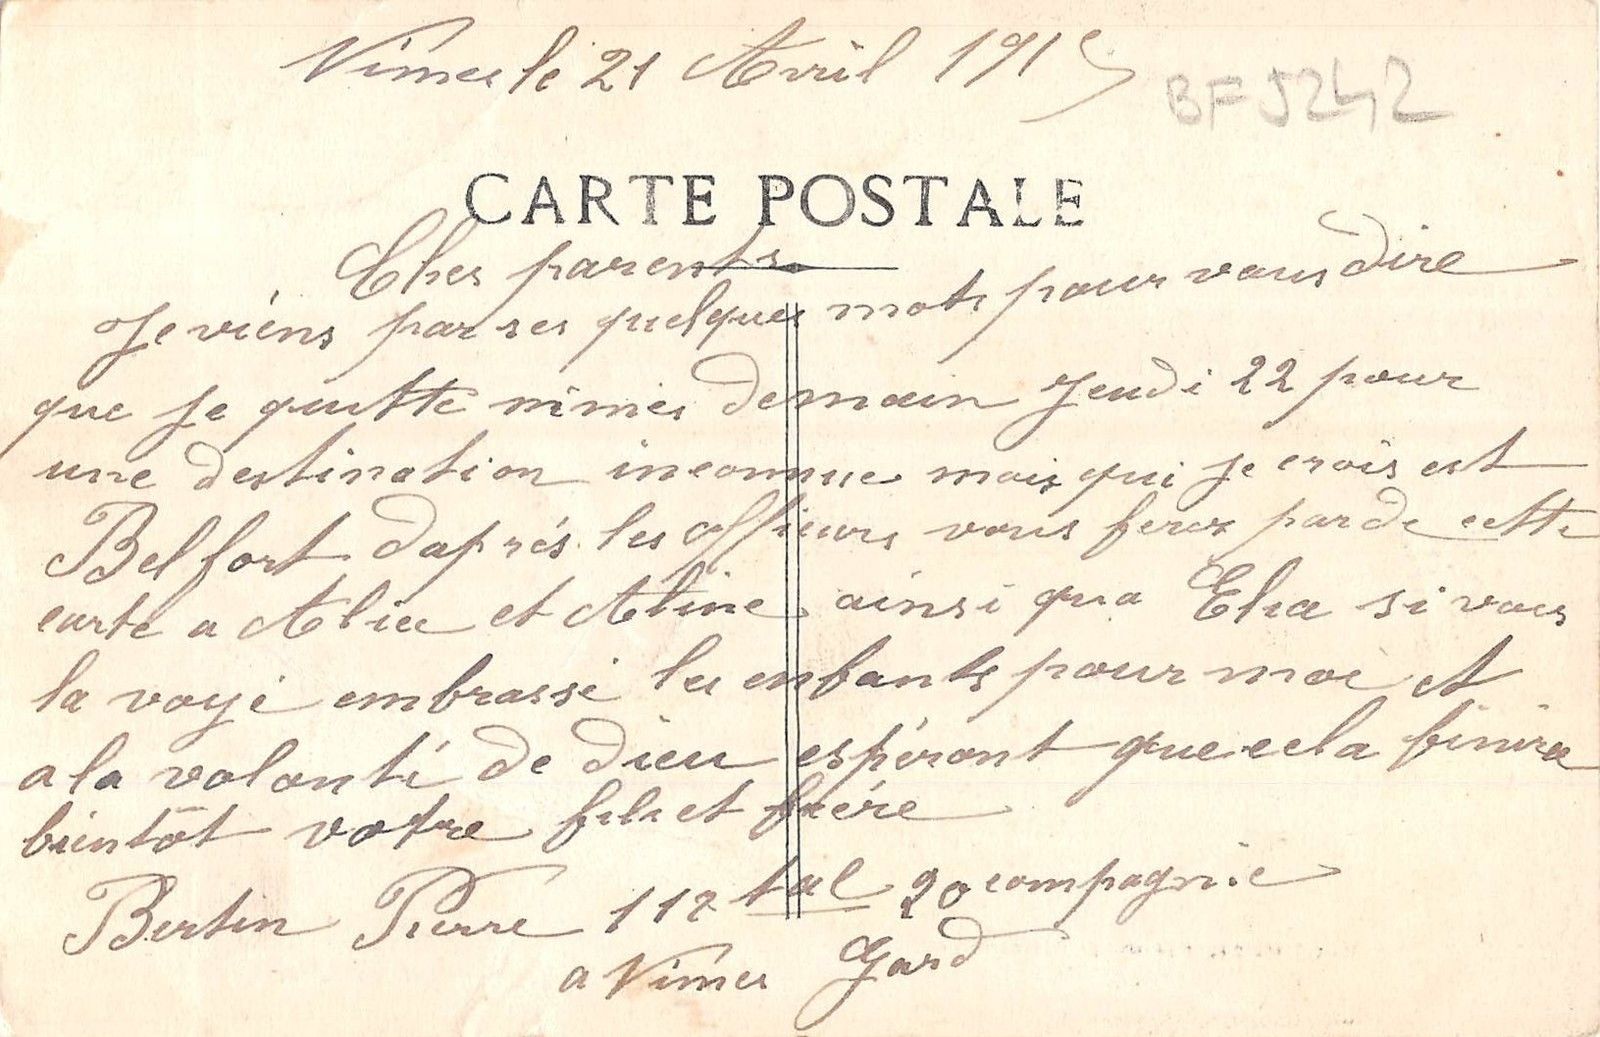 Nimes le 21 Avril 1915
BF 5242
CARTE POSTALE
Chers parents
Je viéns par ses quelques mots pour vous dire
que je quitte nimes demain Jeudi 22 pour
une destination inconnue mais qui je crois est
Belfort daprés les officiers vous ferez par de cette
carte a Alice et Aline ainsi qua Elia si vous
la voyé embrassé les enfants pour moi et
a la volonté de dieu espéront que cela finira
bientôt votre fils et frére
Bertin Pierre 112 tal 20 compagnie
a Nimes Gard